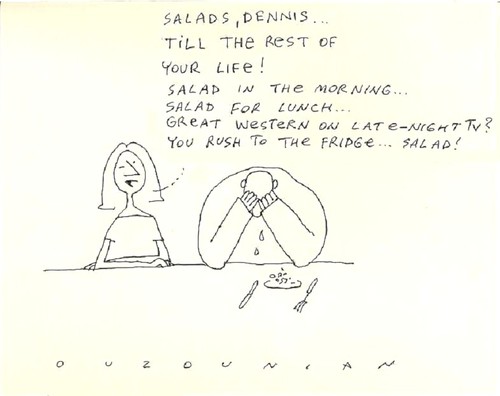 SALADS, DENNIS...
TILL THE REST OF
YOUR LIFE!
SALAD IN THE MORNING...
SALAD FOR LUNCH...
GREAT WESTERN ON LATE-NIGHT TV?
YOU RUSH TO THE FRIDGE... SALAD!
OUZOUNIAN